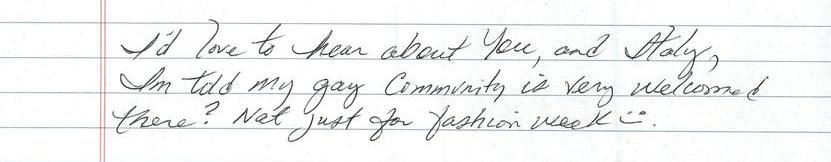 I'd love to hear about you, and Italy,
Im told my gay Community is very welcomed
there? Not just for fashion week :).